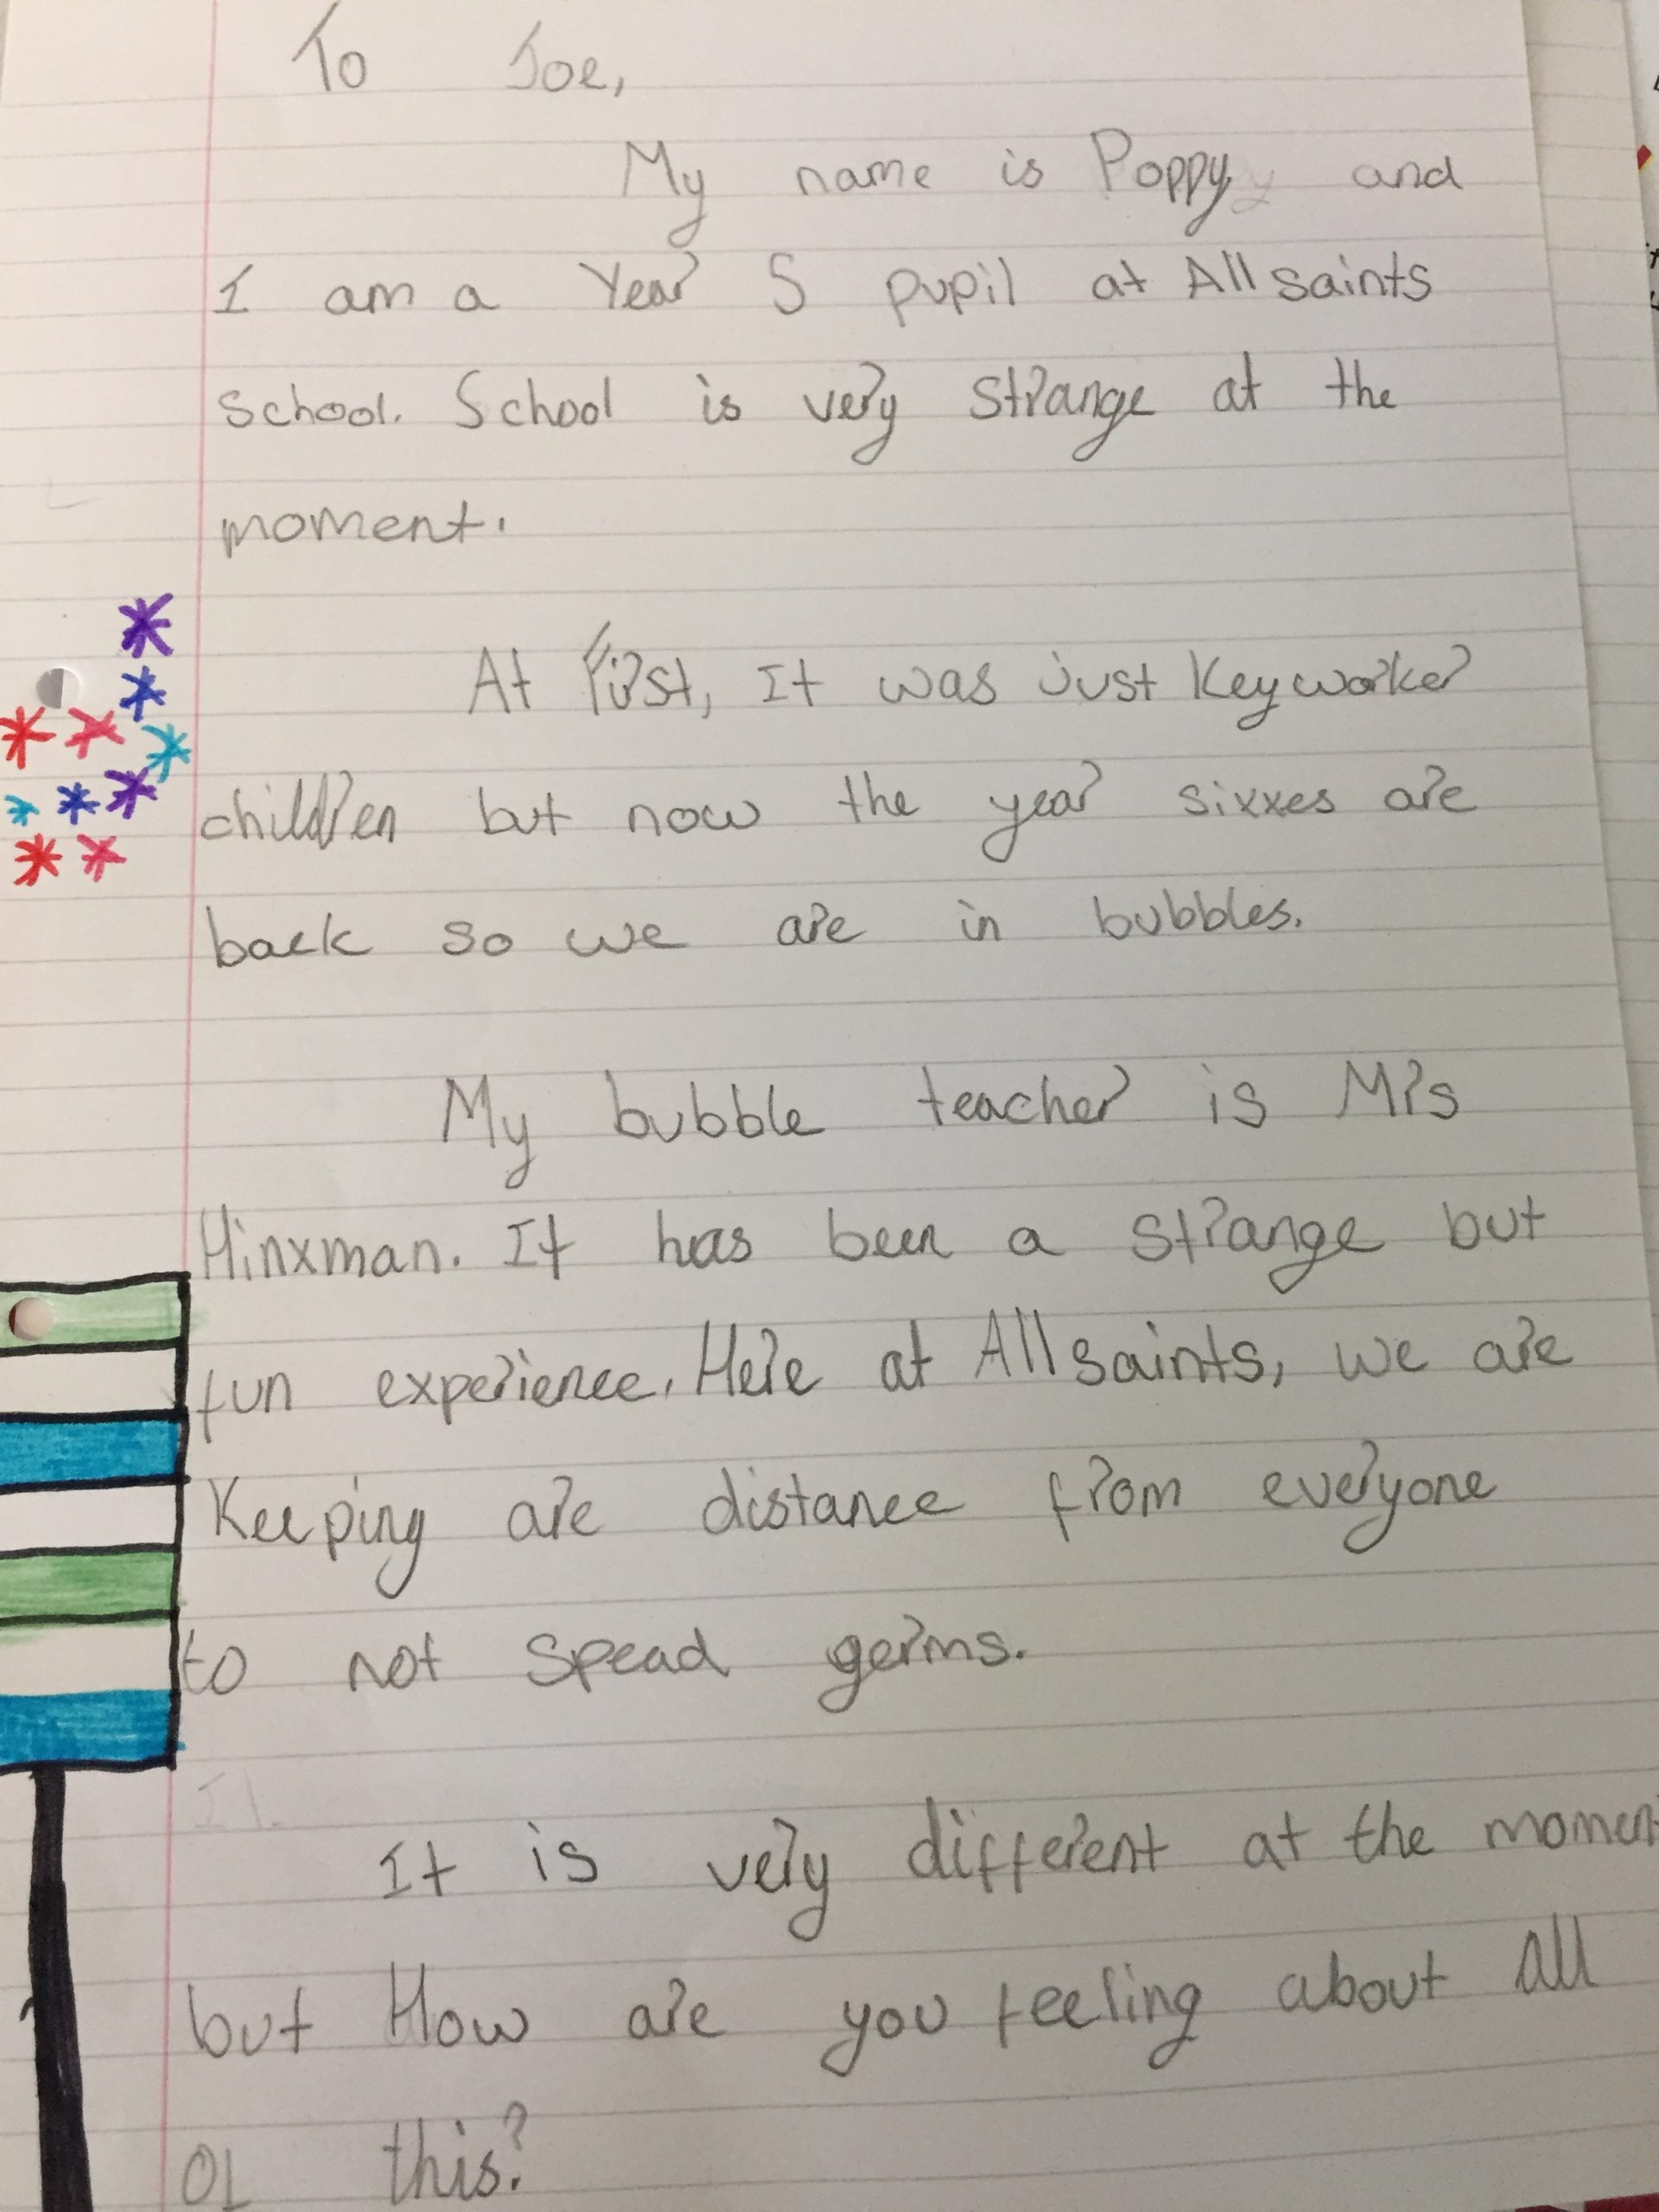 To Joe,
My name is Poppy and
I am a Year 5 pupil at All saints
school. School is very strange at the
moment.
At first, It was just Keyworker
children but now the year sixxes are
back so we are in bubbles.
My bubble teacher is Mrs
Hinxman. It has been a strange but
fun experience. Here at All saints, we are
Keeping are distance from everyone
to not spead germs.
It is very different at the moment
but How are you feeling about all
of this?